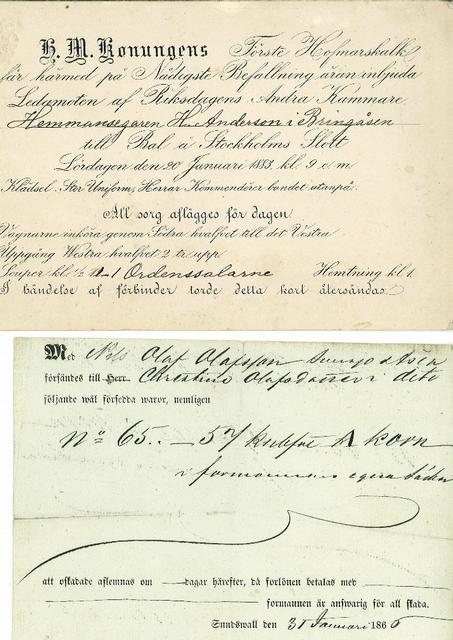 H. M. Konungens Förste Hofmarskalk
får härmed på Nådigste Befallning äran inbjuda
Ledamoten af Riksdagens Andra Kammare,
Hemmansegaren H. Anderson i Bringåsen
till Bal å Stockholms Slott
Lördagen den 20 Januari 1883 kl. 9 e m
Klädsel: Stor Uniform, Herrar Kommendörer bandet utanpå.
All sorg aflägges för dagen
Vagnarne inköra genom Södra hvalfvet till det Vestra
Uppgång Westra hvalfvet 2 tr. upp
Souper kl. ½ 12-1 Ordenssalarne Hemtning kl 1.
I händelse af förhinder torde detta kort återsändas.
Med Nils Olof Olofsson
försändes till Herr Christina i
följande wäl försedda waror, nemligen
No 65. — 57 kubfot korn
i formännens egna
att oskadade aflemnas om dagar härefter, då forlönen betalas med
formannen är answarig för all skada.
Sundswall den 31 Januari 1866